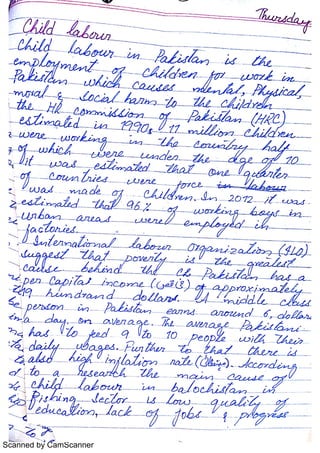 Thursday
Child labour
Child labour in Pakistan is the
employment of children for work in
Pakistan which causes mental, Physical,
moral & social harm to the children
the HR commission of Pakistan (HRC)
estimated in 1990s 11 million children
were working in the country half
of which were under the age of 10
it was estimated that one quarter
of countries were force in labour
was made of children. In 2012 it was
estimated that 96% of working boys in
urban areas were employed in
factories.
International labour organization (ILO)
suggest that poverty is the greatest
cause behind the ch Pakistan has a
per Capital income of approximately
hundrand dollars. A middle class
person in Pakistan earns around 6, dollars
a day, on average. The average Pakistani
has to feed 9 to 10 people with their
daily wages. Further to that there is
also high inflation rate. According
to a research the main cause of
child labour in balochistan in
Fishing Sector is low quality of
education, lack of jobs & progress
Scanned by CamScanner